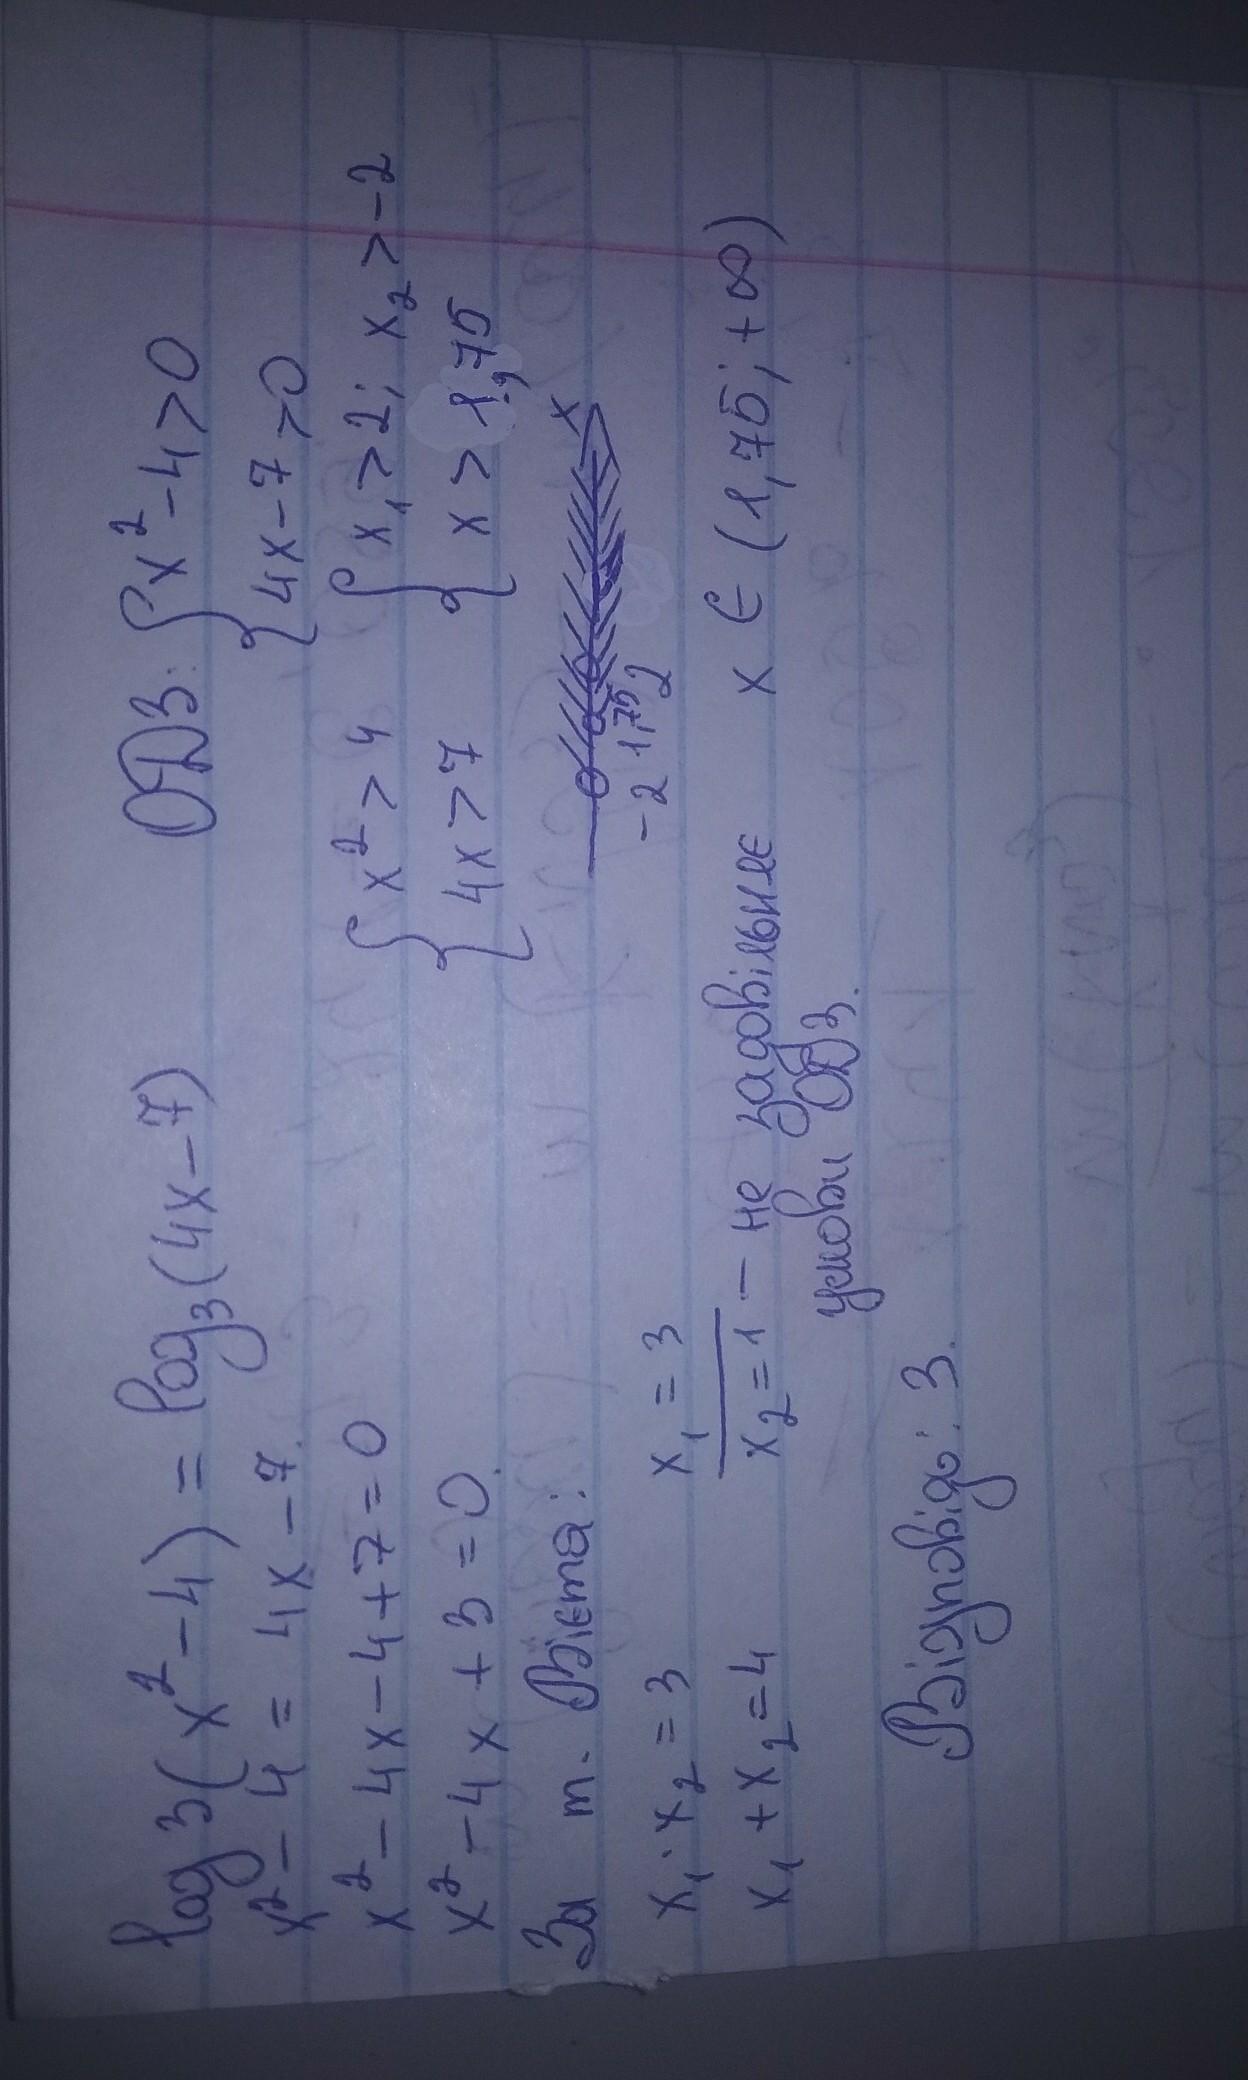 log3(x²-4) = log₃(4x-7)
x²-4 = 4x-7.
x²-4x-4+7=0
x²-4x+3=0.
За т. Вієта:
x₁·x₂=3 x₁=3
x₁+x₂=4 x₂=1 - не задовільнє
умови ОДЗ.
Відповідь: 3.
ОДЗ: { x²-4>0
4x-7>0
{ x²>4 { x₁>2; x₂>-2
4x>7 x>1,75
x
-2 1,75 2
x ∈ (1,75; +∞)